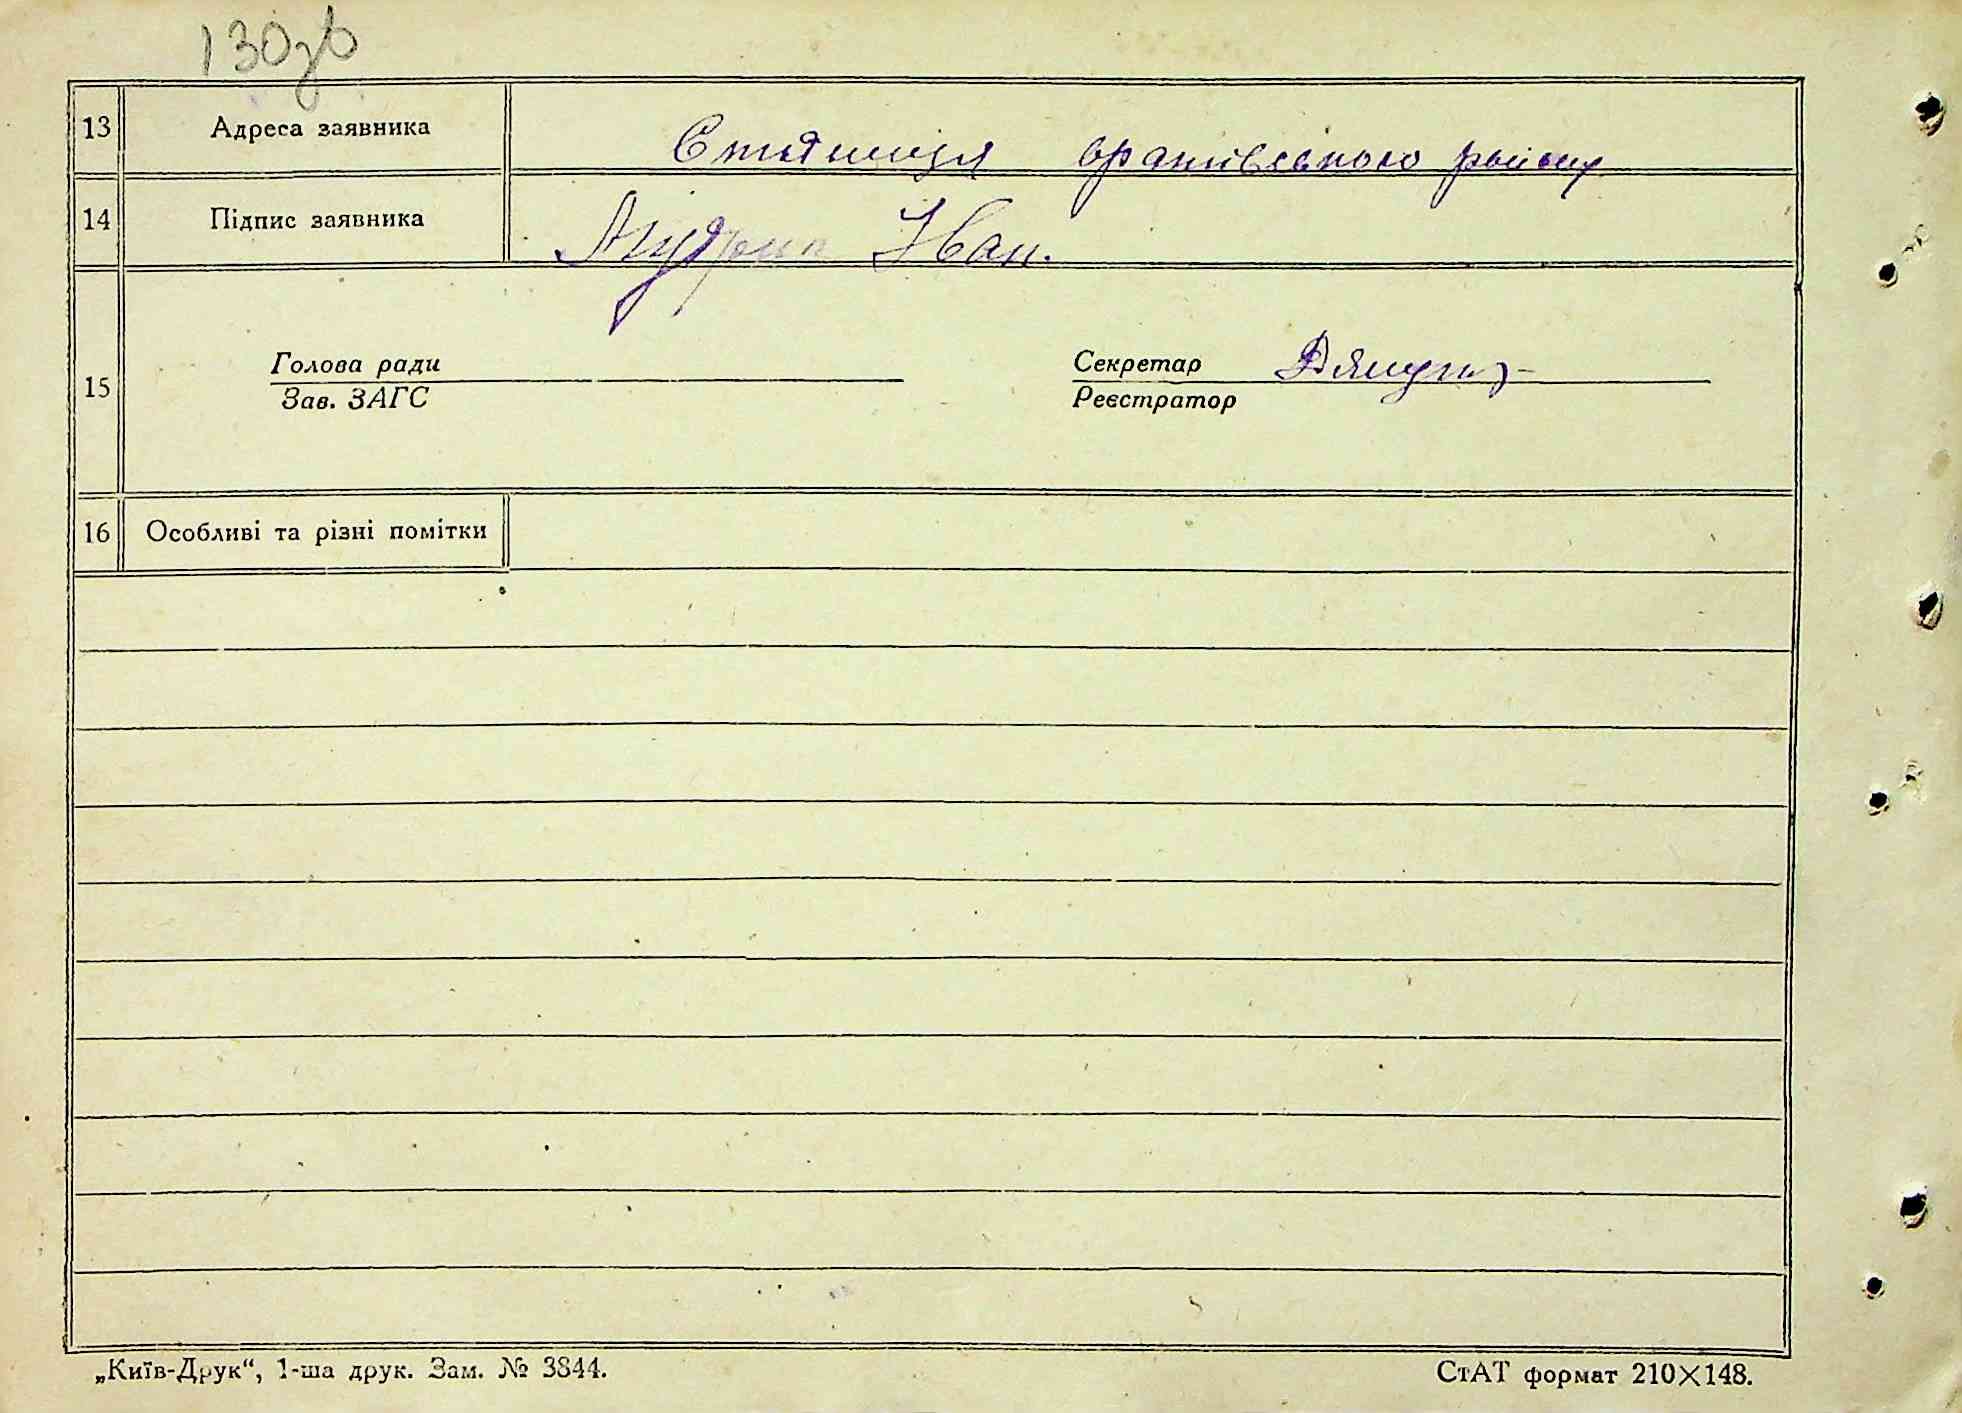 130зв
13 Адреса заявника оратівського району
14 Підпис заявника Іван.
15 Голова ради Секретар
Зав. ЗАГС Реєстратор
16 Особливі та різні помітки
„Київ-Друк“, 1-ша друк. Зам. № 3844. СтАТ формат 210×148.